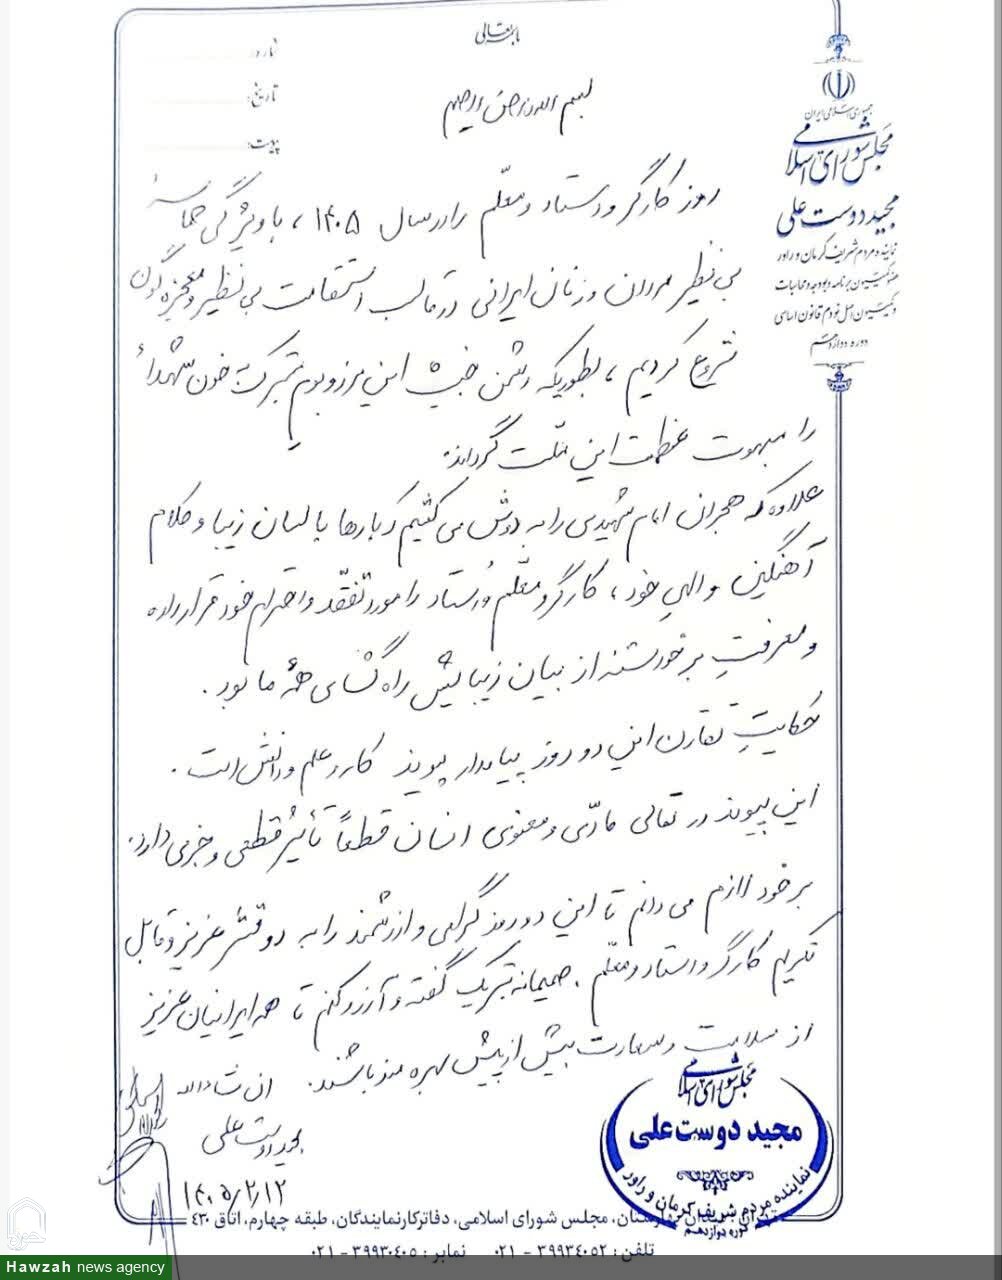 باسمه تعالی
شماره:
تاریخ:
پیوست:
جمهوری اسلامی ایران
مجلس شورای اسلامی
مجید دوست علی
نماینده مردم شریف کرمان و راور
عضو کمیسیون برنامه و بودجه و محاسبات
و کمیسیون اصل نودم قانون اساسی
دوره دوازدهم
بسم الله الرحمن الرحیم
روز کارگر و استاد و معلّم را در سال ۱۴۰۵ ، با ویژگی حماسهٔ
بی نظیر مردان و زنان ایرانی در قالب استقامت بی نظیر و معجزه گون
شروع کردیم ، بطوریکه دشمن خبیث این مرز و بوم به برکت خون شهداء
را مبهوت عظمت این ملّت گرداند.
علاوه که هجران امام شهیدی را به دوش می کشیم که بارها با لسان زیبا و کلام
آهنگین و الهیِ خود ، کارگر و معلّم و استاد را مورد تفقّد و احترام خود قرار داده
و معرفتِ برخورسته از بیان زیبایش راه گشای همهٔ ما بود .
حکایتِ تقارن این دو روز پیامدار پیوند کار و علم و دانش است .
این پیوند در تعالی مادّی و معنوی انسان قطعاً تأثیر قطعی و جزمی دارد.
بر خود لازم می دانم تا این دو روز گرامی و ارزشمند را به دو قشر عزیز و قابل
تکریم کارگر و استاد و معلّم . صمیمانه تبریک گفته و آرزو کنم تا همه ایرانیان عزیز
از سلامت و سعادت بیش از پیش بهره مند باشند. ان شاءالله
مجید دوست علی
۱۴۰۵/۲/۱۲
مجلس شورای اسلامی
مجید دوست علی
نماینده مردم شریف کرمان و راور
دوره دوازدهم
تهران، میدان بهارستان، مجلس شورای اسلامی، دفاتر کار نمایندگان، طبقه چهارم، اتاق ۴۳۰
تلفن : ۳۹۹۳۴۰۵۲ - ۰۲۱ نمابر : ۳۹۹۳۰۴۰۵ - ۰۲۱
Hawzah news agency